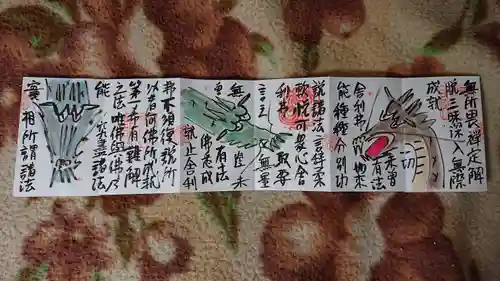 無所畏禅定解
脱三昧深入無際
成就一切
未曾有法
舎利弗如来
能種種分別巧
説諸法言辞柔
軟悦可衆心舎
利弗取要
言之無量
無辺未
曾有法
佛悉成
就止舎利
弗不須復説所
以者何佛所成就
第一希有難解
之法唯佛與佛乃
能究盡諸法
實相所謂諸法